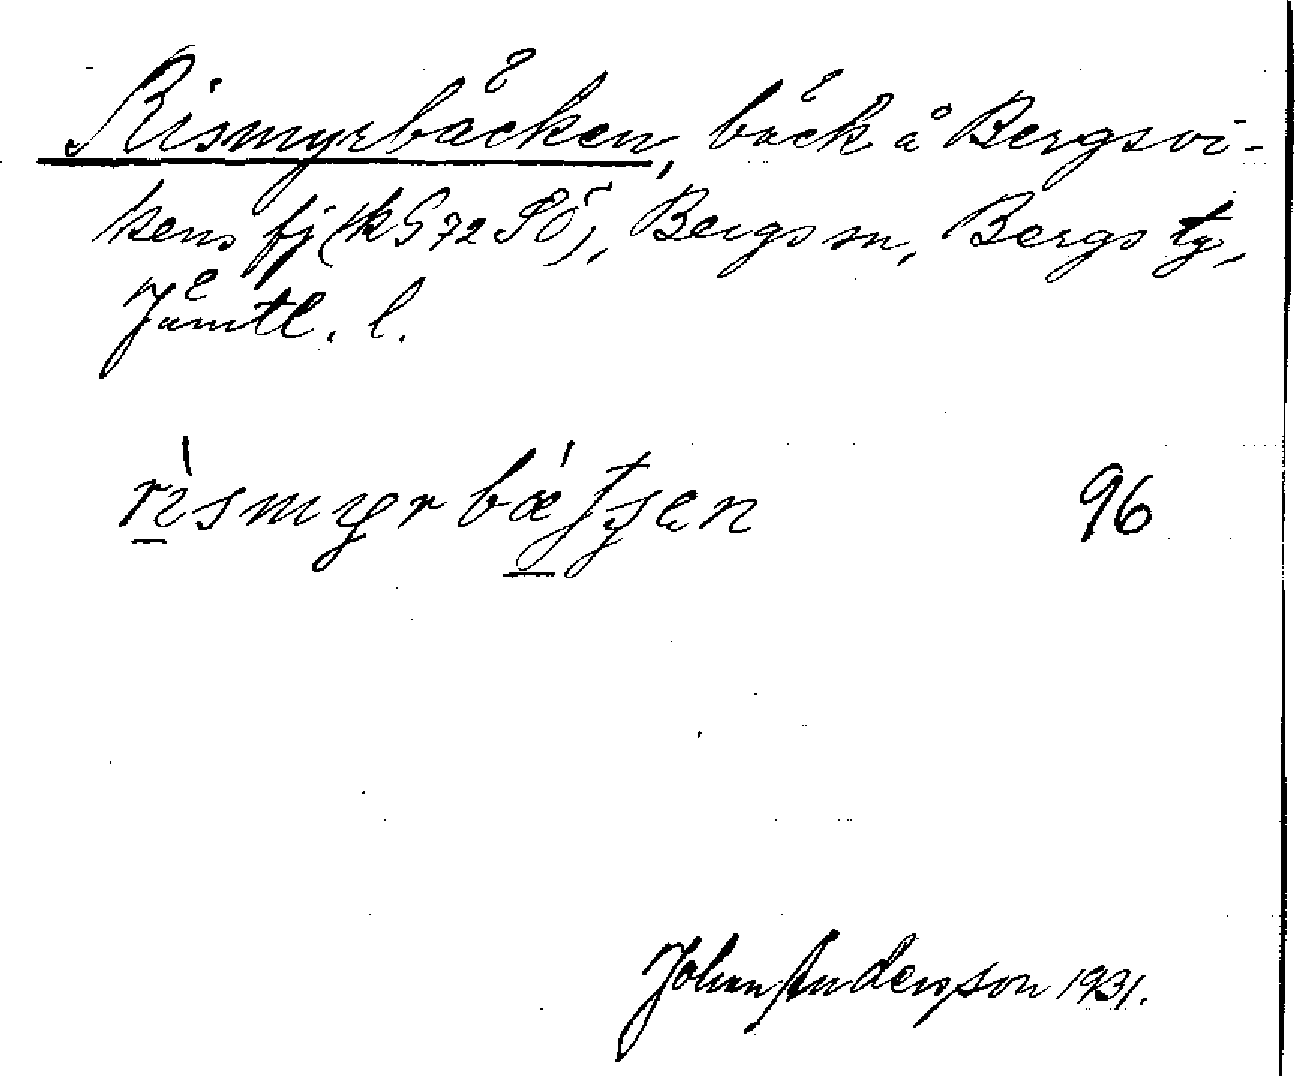 Rismyrbäcken, bäck å Bergsvi-
kens fj (k G 72 SÖ), Bergs sn, Bergs tg,
Jämtl. l.
96
Johan Anderson 1931.